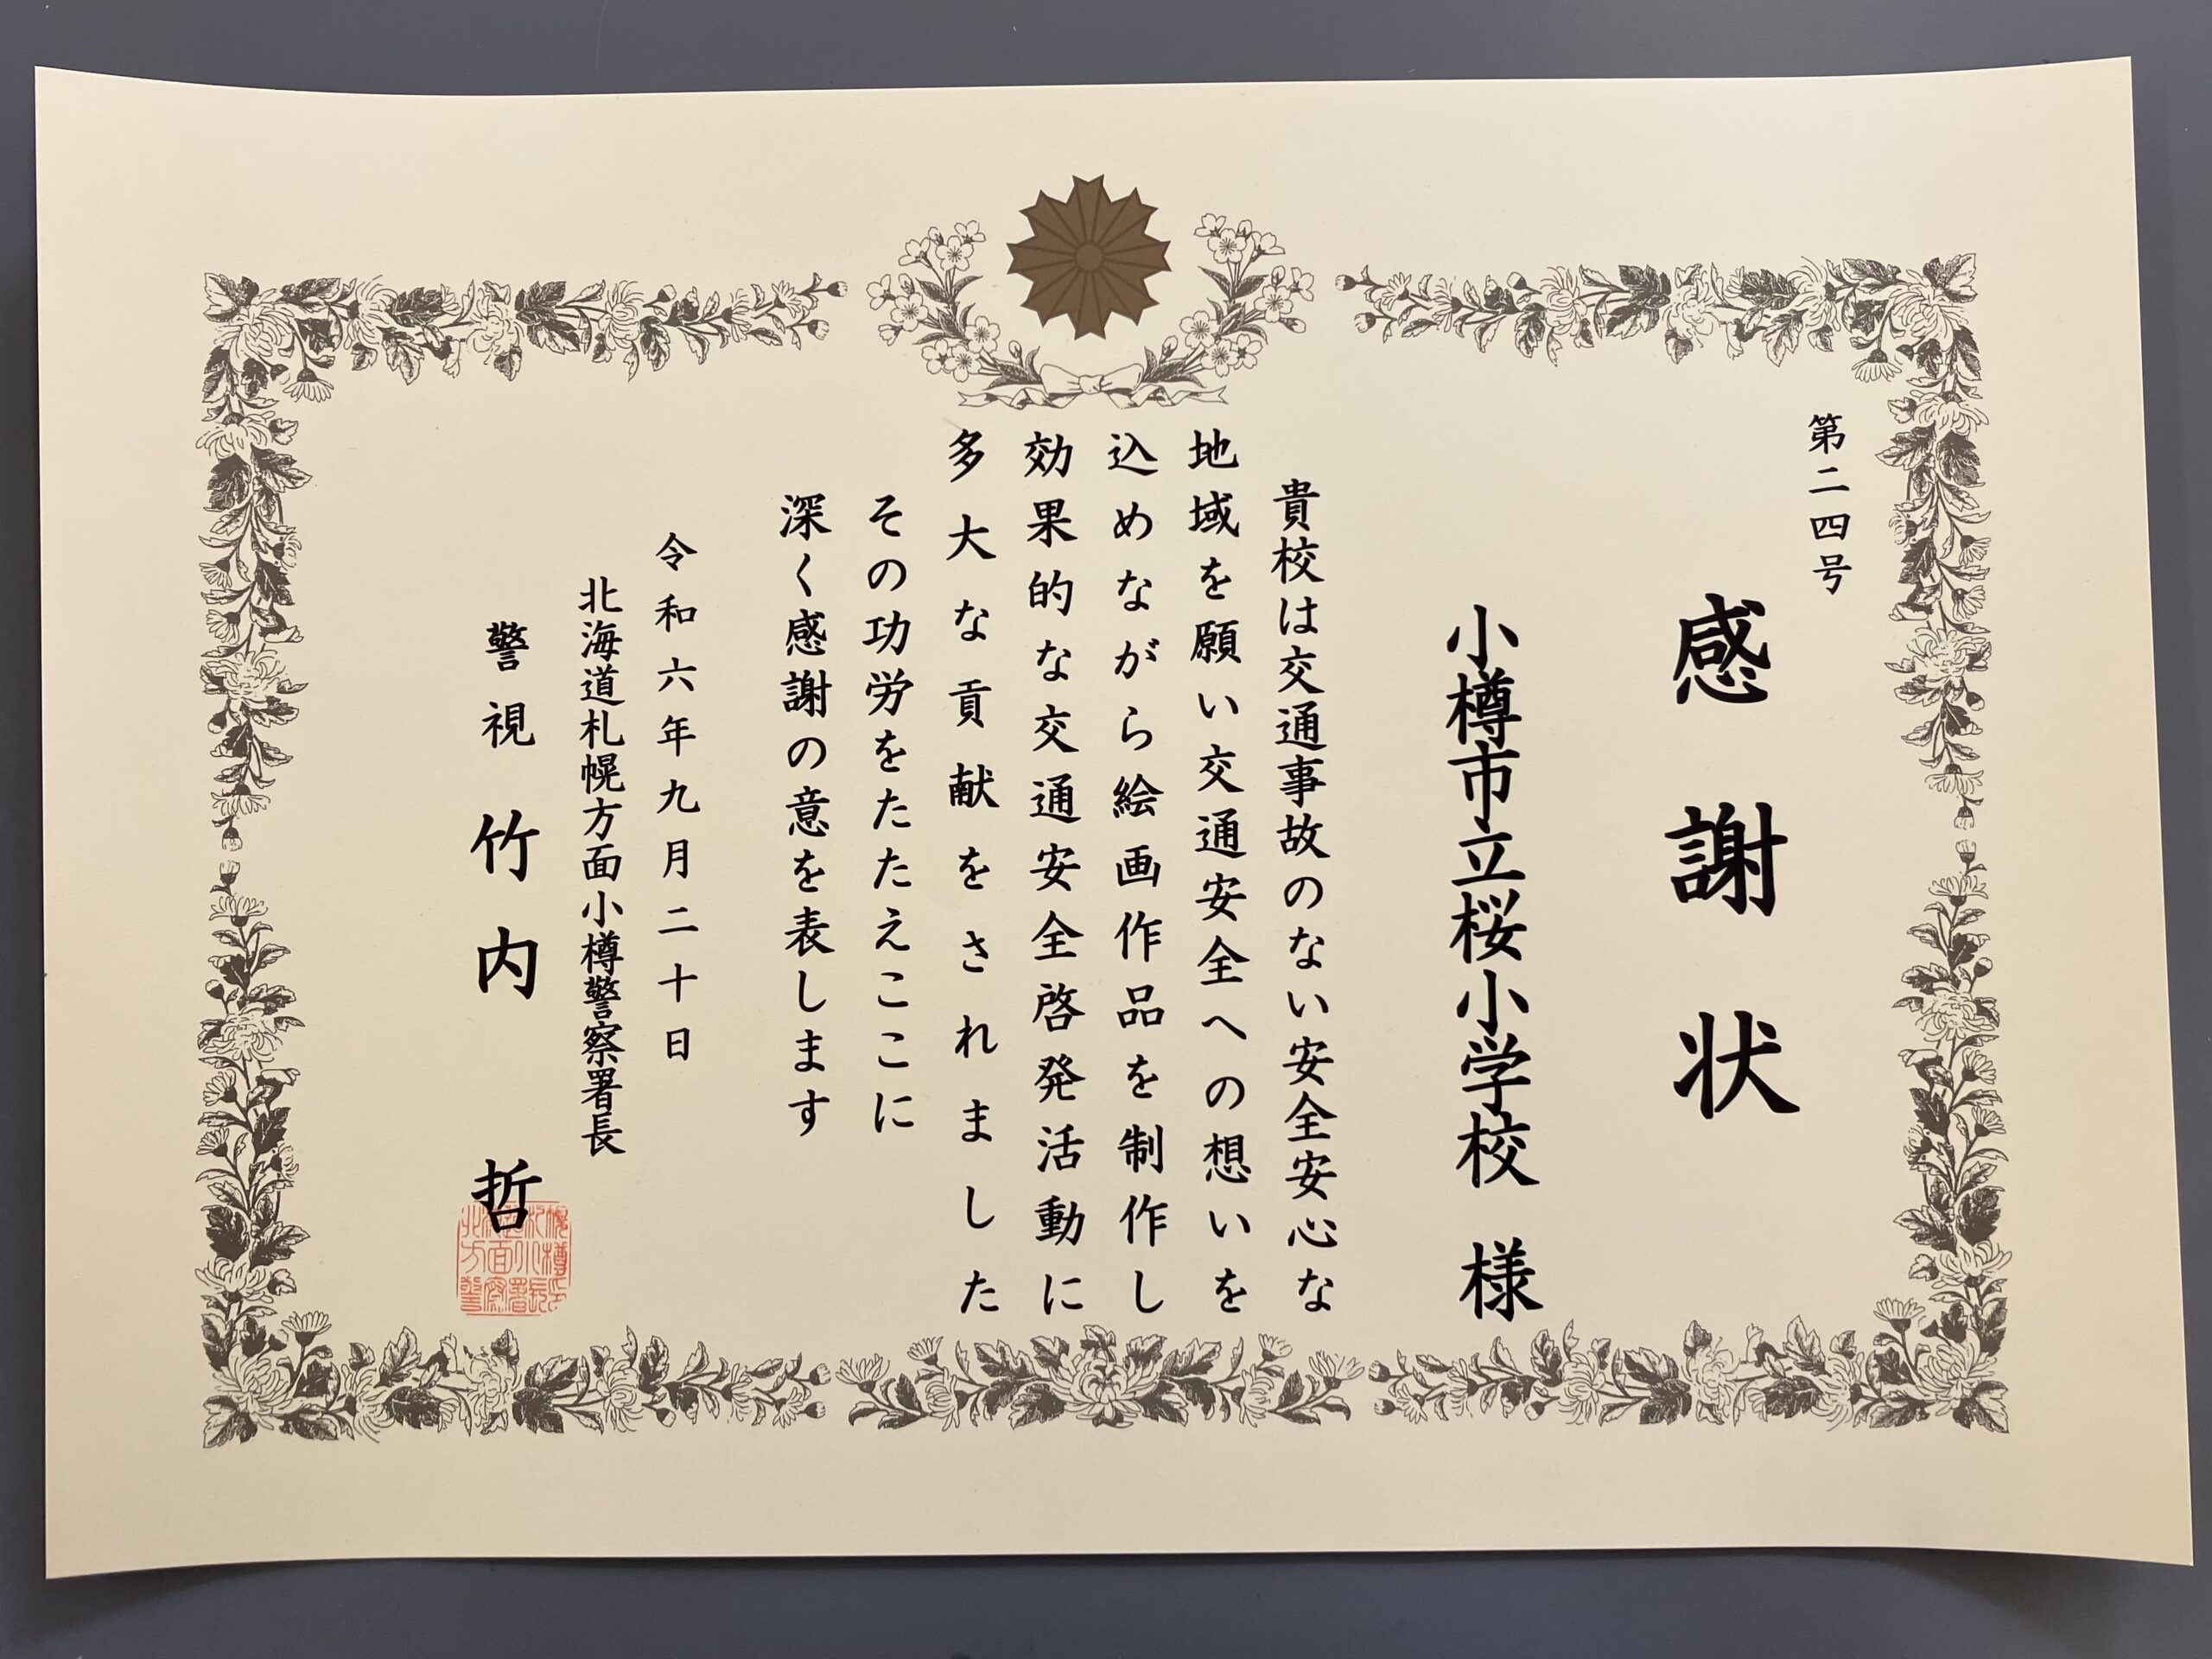 第二四号
感謝状
小樽市立桜小学校 様
貴校は交通事故のない安全安心な
地域を願い交通安全への想いを
込めながら絵画作品を制作し
効果的な交通安全啓発活動に
多大な貢献をされました
その功労をたたえここに
深く感謝の意を表します
令和六年九月二十日
北海道札幌方面小樽警察署長
警視 竹内 哲